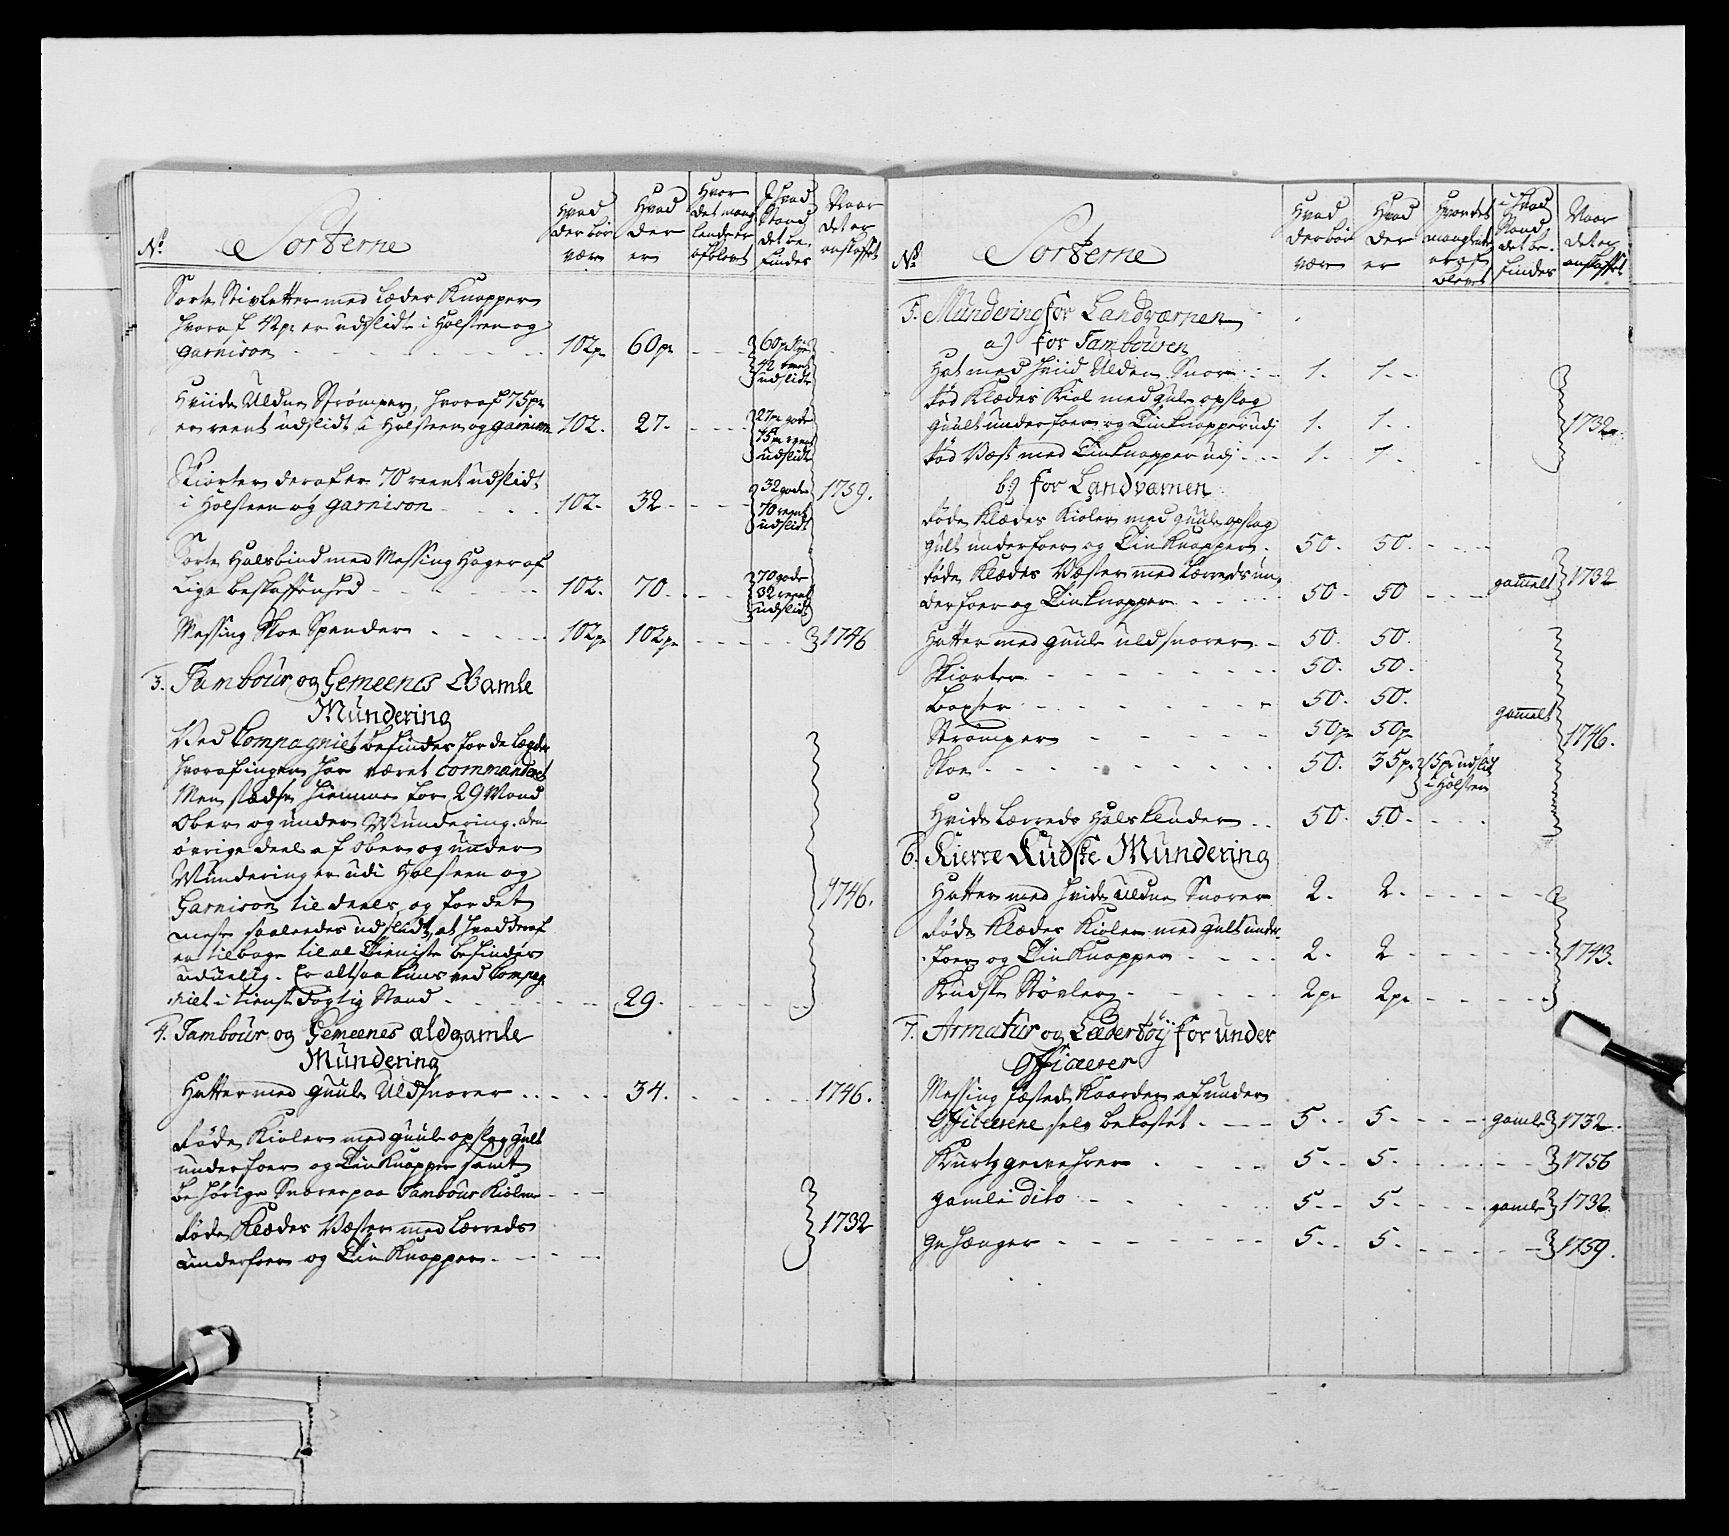 No. Sorterne Hvad der bør være Hvad der er Hvor det manglende er afblevet I hvad Stand det befindes Naar det er anskaffet
Sorte Stivletter med Læder Knapper
hvoraf 42pr er udslidt i Holsteen og
garnison 102pr 60pr 60pr Nye 42 reent udslidt
Hviide Uldne Strømper, hvoraf 75pr
er reent udslidt i Holsteen og garnison 102. 27. 27pr gode 75pr reent udslidt
Skiorter deraf er 70 reent udslidt
i Holsteen og garnison 102. 32 32 gode 70 reent udslidt 1759.
Sorte Halsbind med Messing Hager af
Lige beskaffenhed 102. 70. 70 gode 32 reent udslidt
Messing Skoe Spender 102pr 102pr 1746
3. Tambour og Gemeenes Gamle
Mundering
Ved Compagniet befindes for de Lægder
hvoraf ingen har været Commanderet
Men stedse hiemme for 29 Mand
Ober og under Mundering. den
øvrige deel af Ober og under
Mundering er udi Holsteen og
Garnison til deels, og for det
meste saaleedes udslidt, at hvad deraf
er tilbage til al Tieniste befindes
uduelig. Er altsaa kuns ved Compag
niet i tienstdygtig Stand 29. 1746.
4. Tambour og Gemeenes ældgamle
Mundering
Hatter med guule Uldsnorer 34. 1746.
Røde Kioler med guule opslag gult
underfoer og Tin Knapper samt
behørige Snorer paa Tambour Kiolen
Røde Klædes Væster med Lærreds
underfoer og Tin Knapper 1732
No. Sorterne Hvad der bør være Hvad der er Hvor det manglende er afblevet i hvad Stand det befindes Naar det er anskaffet
5. Mundering for Landværnen
a) for Tambouren
Hat med hvid Ulden Snor 1. 1.
Rød Klædes Kiol med gule opslag
guult underfoer og Tinknapper udj 1. 1. 1732.
Rød Væst med Tinknapper udj 1. 1.
b) for Landværnen
Røde Klædes Kioler med guule opslag
gult underfoer og Tin Knapper 50. 50.
Røde Klædes Væster med Lærreds un
derfoer og Tinknapper 50. 50 gamelt 1732
Hatter med guule uldsnorer 50. 50.
Skiorter 50. 50.
Boxser 50. 50.
Strømper 50pr 50pr gamelt 1746.
Skoe 50. 35pr 15pr udslidt i Holsten
Hvide Lærreds Halsklæder 50. 50.
6. Kierre Kudske Mundering
Hatter med hvide Uldne Snorer 2. 2.
Røde Klædes Kioler med gult under-
foer og Tin Knapper 2. 2 1743.
Kudske Støvler 2pr 2pr
7. Armatur og Lædertøy for under
Officerer
Messing fæstede Kaarder af under
Officerene selv bekostet 5. 5. gamle 1732.
Kurtzgewehrer 5. 5. 1756
gamle dito 5. 5. gamle 1732.
Gehænger 5. 5. 1759.